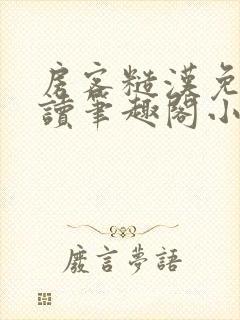 房客糙漢免
讀筆趣閣小
廢言夢語